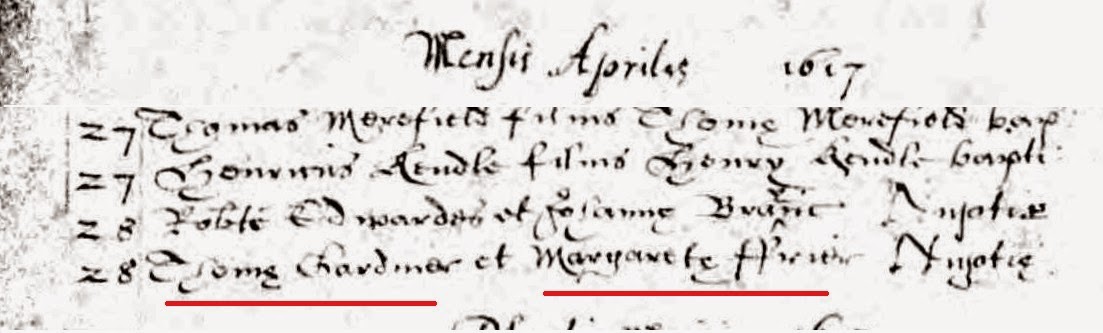 Mensis Aprilis 1617
27 Thomas Merefield filius Thome Merefield bap:
27 Henricus Rendle filius Henry Rendle bapti:
28 Robte Edwardes et Johanne Nuptie
28 Thome Gardner et Margarete ffrier Nuptie